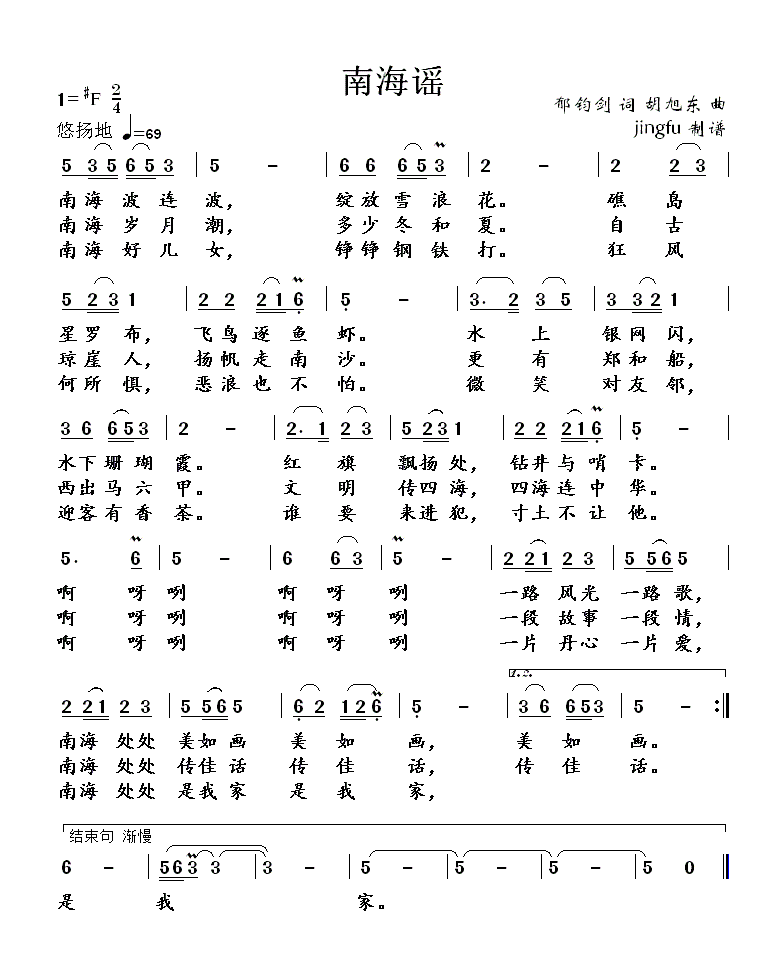 南海谣
1=♯F 2/4
郁钧剑 词 胡旭东 曲
悠扬地 ♩=69
jingfu 制谱
5 3 5 6 5 3 | 5 - | 6 6 6 5 3 | 2 - | 2 2 3 |
南海 波 连 波, 绽放 雪 浪 花。 礁 岛
南海 岁 月 潮, 多少 冬 和 夏。 自 古
南海 好 儿 女, 铮铮 钢 铁 打。 狂 风
5 2 3 1 | 2 2 2 1 6 | 5 - | 3. 2 3 5 | 3 3 2 1 |
星罗 布, 飞鸟 逐 鱼 虾。 水 上 银网 闪,
琼崖 人, 扬帆 走 南 沙。 更 有 郑和 船,
何所 惧, 恶浪 也 不 怕。 微 笑 对友 邻,
3 6 6 5 3 | 2 - | 2. 1 2 3 | 5 2 3 1 | 2 2 2 1 6 | 5 - |
水下 珊 瑚 霞。 红 旗 飘扬 处, 钻井 与 哨 卡。
西出 马 六 甲。 文 明 传四 海, 四海 连 中 华。
迎客 有 香 茶。 谁 要 来进 犯, 寸土 不 让 他。
5. 6 | 5 - | 6 6 3 | 5 - | 2 2 1 2 3 | 5 5 6 5 |
啊 呀 咧 啊 呀 咧 一路 风光 一路 歌,
啊 呀 咧 啊 呀 咧 一段 故事 一段 情,
啊 呀 咧 啊 呀 咧 一片 丹心 一片 爱,
1.2.
2 2 1 2 3 | 5 5 6 5 | 6 2 1 2 6 | 5 - | 3 6 6 5 3 | 5 - :||
南海 处处 美如 画 美 如 画, 美 如 画。
南海 处处 传佳 话 传 佳 话, 传 佳 话。
南海 处处 是我 家 是 我 家,
结束句 渐慢
6 - | 5 6 3 3 | 3 - | 5 - | 5 - | 5 - | 5 0 ||
是 我 家。